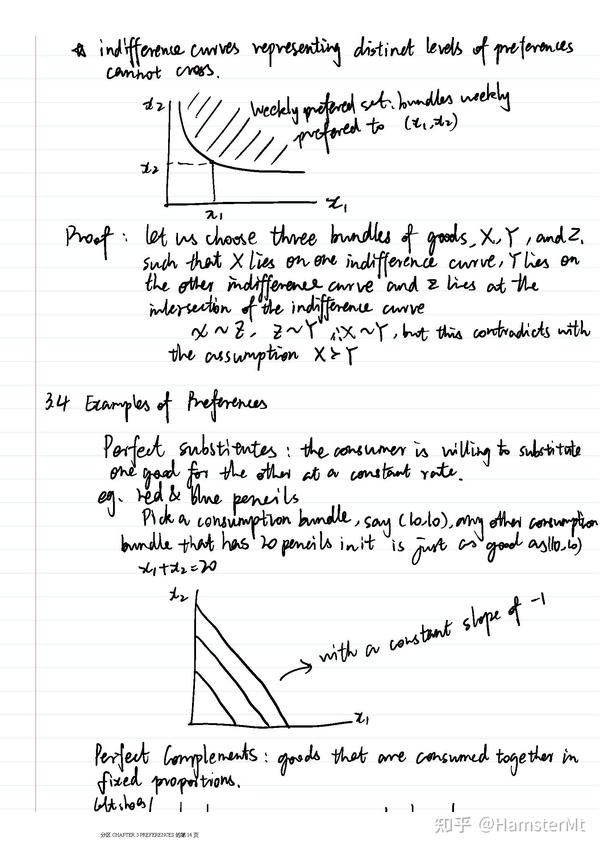 ☆ indifference curves representing distinct levels of preferences
cannot cross.
x2
weekly prefered set: bundles weekly
prefered to (x1,x2)
x2
x1
x1
Proof: let us choose three bundles of goods, X, Y, and Z.
such that X lies on one indifference curve, Y lies on
the other indifference curve and Z lies at the
intersection of the indifference curve
X ~ Z, Z ~ Y ∴ X ~ Y, but this contradicts with
the assumption X ≻ Y
3.4 Examples of Preferences
Perfect substitutes: the consumer is willing to substitute
one good for the other at a constant rate.
eg. red & blue pencils
Pick a consumption bundle, say (10,10), any other consumption
bundle that has 20 pencils in it is just as good as (10,10)
x1+x2=20
x2
with a constant slope of -1
x1
Perfect Complements: goods that are consumed together in
fixed proportions.
left shoes
分区 CHAPTER 3 PREFERENCES 的第 14 页
知乎 @HamsterMt